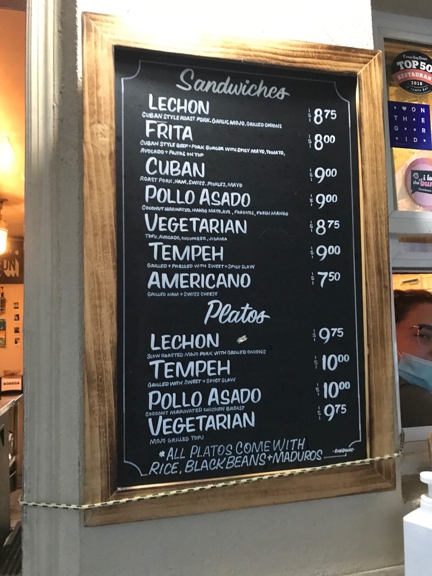 Sandwiches
LECHON $8.75
CUBAN STYLE ROAST PORK, GARLIC MOJO, GRILLED ONIONS
FRITA $8.00
CUBAN STYLE BEEF + PORK BURGER WITH SPICY MAYO, TOMATO,
AVOCADO + PAPITAS ON TOP
CUBAN $9.00
ROAST PORK, HAM, SWISS, PICKLES, MAYO
POLLO ASADO $9.00
COCONUT MARINATED, MANGO MAYO,
VEGETARIAN $8.75
TOFU, AVOCADO, CUCUMBER, JICAMA
TEMPEH $9.00
GRILLED + PRESSED WITH SWEET + SPICY SLAW
AMERICANO $7.50
GRILLED HAM + SWISS CHEESE
Platos
LECHON $9.75
SLOW ROASTED MOJO PORK WITH GRILLED ONIONS
TEMPEH $10.00
GRILLED WITH SWEET + SPICY SLAW
POLLO ASADO $10.00
COCONUT MARINATED CHICKEN BREAST
VEGETARIAN $9.75
MOJO GRILLED TOFU
* ALL PLATOS COME WITH
RICE, BLACK BEANS + MADUROS
TOP 50
RESTAURANT
BODEGA